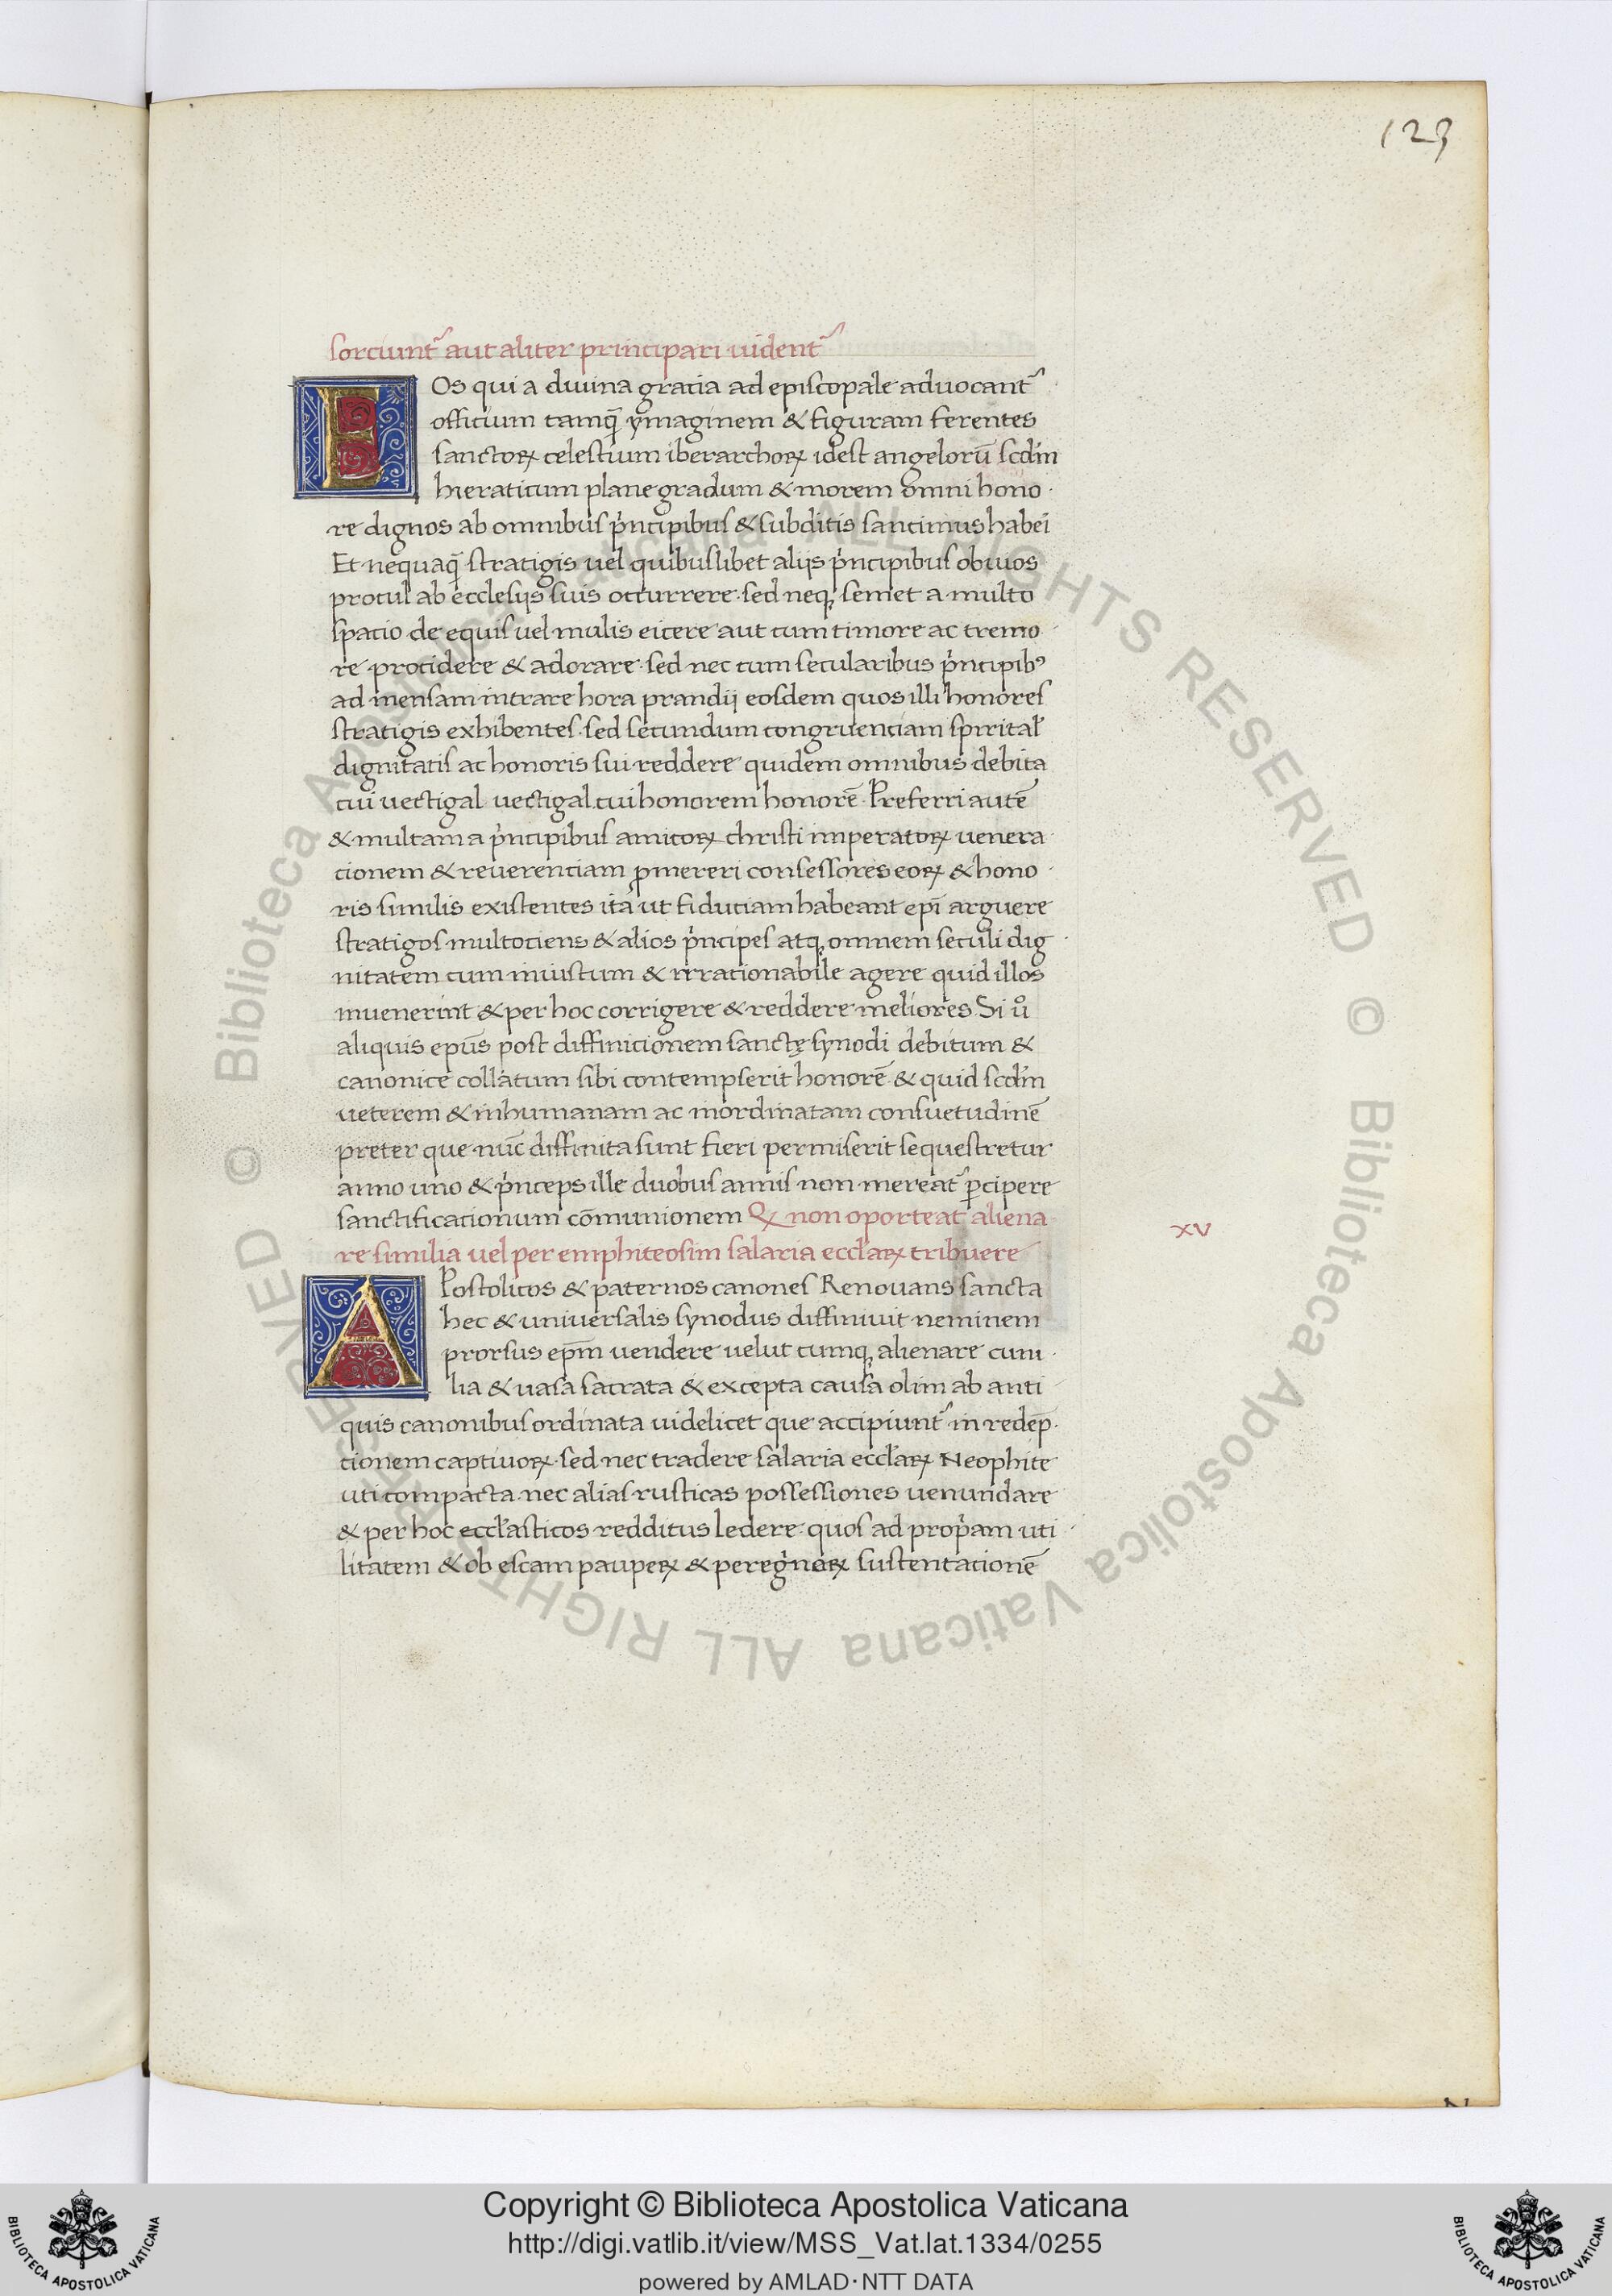 123
sorciunt᷑ aut aliter principari uident᷑
EOs qui a diuina gratia ad episcopale aduocant᷑
officium tamq̄ ymaginem & figuram ferentes
sanctoꝝ celestium iherarchoꝝ idest angelorū scd'm
hieraticum plane gradum & morem omni hono
re dignos ab omnibus pͥncipibus & subditis sancimus haberi
Et nequaq̄ stratigis uel quibuslibet aliis pͥncipibus obuios
procul ab ecclesiis suis occurrere sed neq, semet a multo
spacio de equis uel mulis eicere aut cum timore ac tremo
re procidere & adorare sed nec cum secularibus pͥncipib᾿
ad mensam intrare hora prandii eosdem quos illi honores
stratigis exhibentes sed secundum congruenciam spirital'
dignitatis ac honoris sui reddere quidem omnibus debita
cui uectigal uectigal cui honorem honorē Preferri autē
& multam a pͥncipibus amicoꝝ christi imperatoꝝ uenera
cionem & reuerenciam ꝓmereri consessores eoꝝ & hono
ris similis existentes ita ut fiduciam habeant epī arguere
stratigos multociens & alios pͥncipes atq, omnem seculi dig
nitatem cum iniustum & irrationabile agere quid illos
inuenerint & per hoc corrigere & reddere meliores Si uͦ
aliquis epūs post diffinicionem sanctę synodi debitum &
canonice collatum sibi contempserit honorē & quid scd'm
ueterem & inhumanam ac inordinatam consuetudinē
preter que nūc diffinita sunt fieri permiserit sequestretur
anno uno & pͥnceps ille duobus annis non mereat᷑ ꝑcipere
sanctificacionum cōmunionem Qꝝ non oporteat aliena
re similia uel per emphiteosim salaria eccl'aꝝ tribuere
xv
APostolicos & paternos canones Renouans sancta
hec & uniuersalis synodus diffiniuit neminem
prorsus ep̄m uendere uelut cumq, alienare cimi
lia & uasa sacrata & excepta causa olim ab anti
quis canonibus ordinata uidelicet que accipiunt᷑ in redep̄
cionem captiuoꝝ sed nec tradere salaria eccl'aꝝ Neophite
uti compacta nec alias rusticas possessiones uenundare
& per hoc eccl'asticos redditus ledere quos ad propͥam uti
litatem & ob escam pauperꝝ & peregͥnoꝝ sustentacionē
Copyright © Biblioteca Apostolica Vaticana
http://digi.vatlib.it/view/MSS_Vat.lat.1334/0255
powered by AMLAD·NTT DATA
BIBLIOTECA APOSTOLICA VATICANA
BIBLIOTECA APOSTOLICA VATICANA
© Biblioteca Apostolica Vaticana ALL RIGHTS RESERVED © Biblioteca Apostolica Vaticana ALL RIGHTS RESERVED